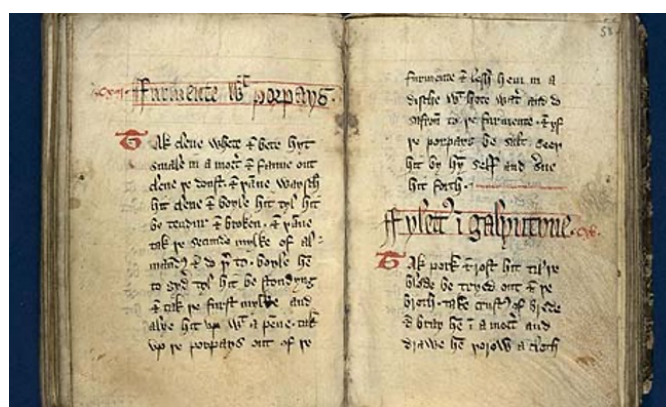 Furmente wt porpays.
Tak clene whete & bete hyt
smale in a mort & fanne out
clene þe doust. & þane waysch
hit clene & boyle hit tyl hit
be tendur & broken. & þane
tak þe secunde mylke of al-
mands & do þr to. boyle hem
to gydr tyl hit be stondyng
& tak þe furst mylke and
alye hit up wt a penne. tak
up þe porpays out of þe
58
furmente & lesh hem in a
disshe wt hote watr and do
safron to þe furmente. & yf
þe porpays be salt seeþ
hit by hy self and srue
hit forth.
Fylett i galyntyne.
Tak pork & rost hit til þe
blode be tryed out & þe
broth. take crusts of brede
& bray he i a mort and
drawe he þorow a cloth